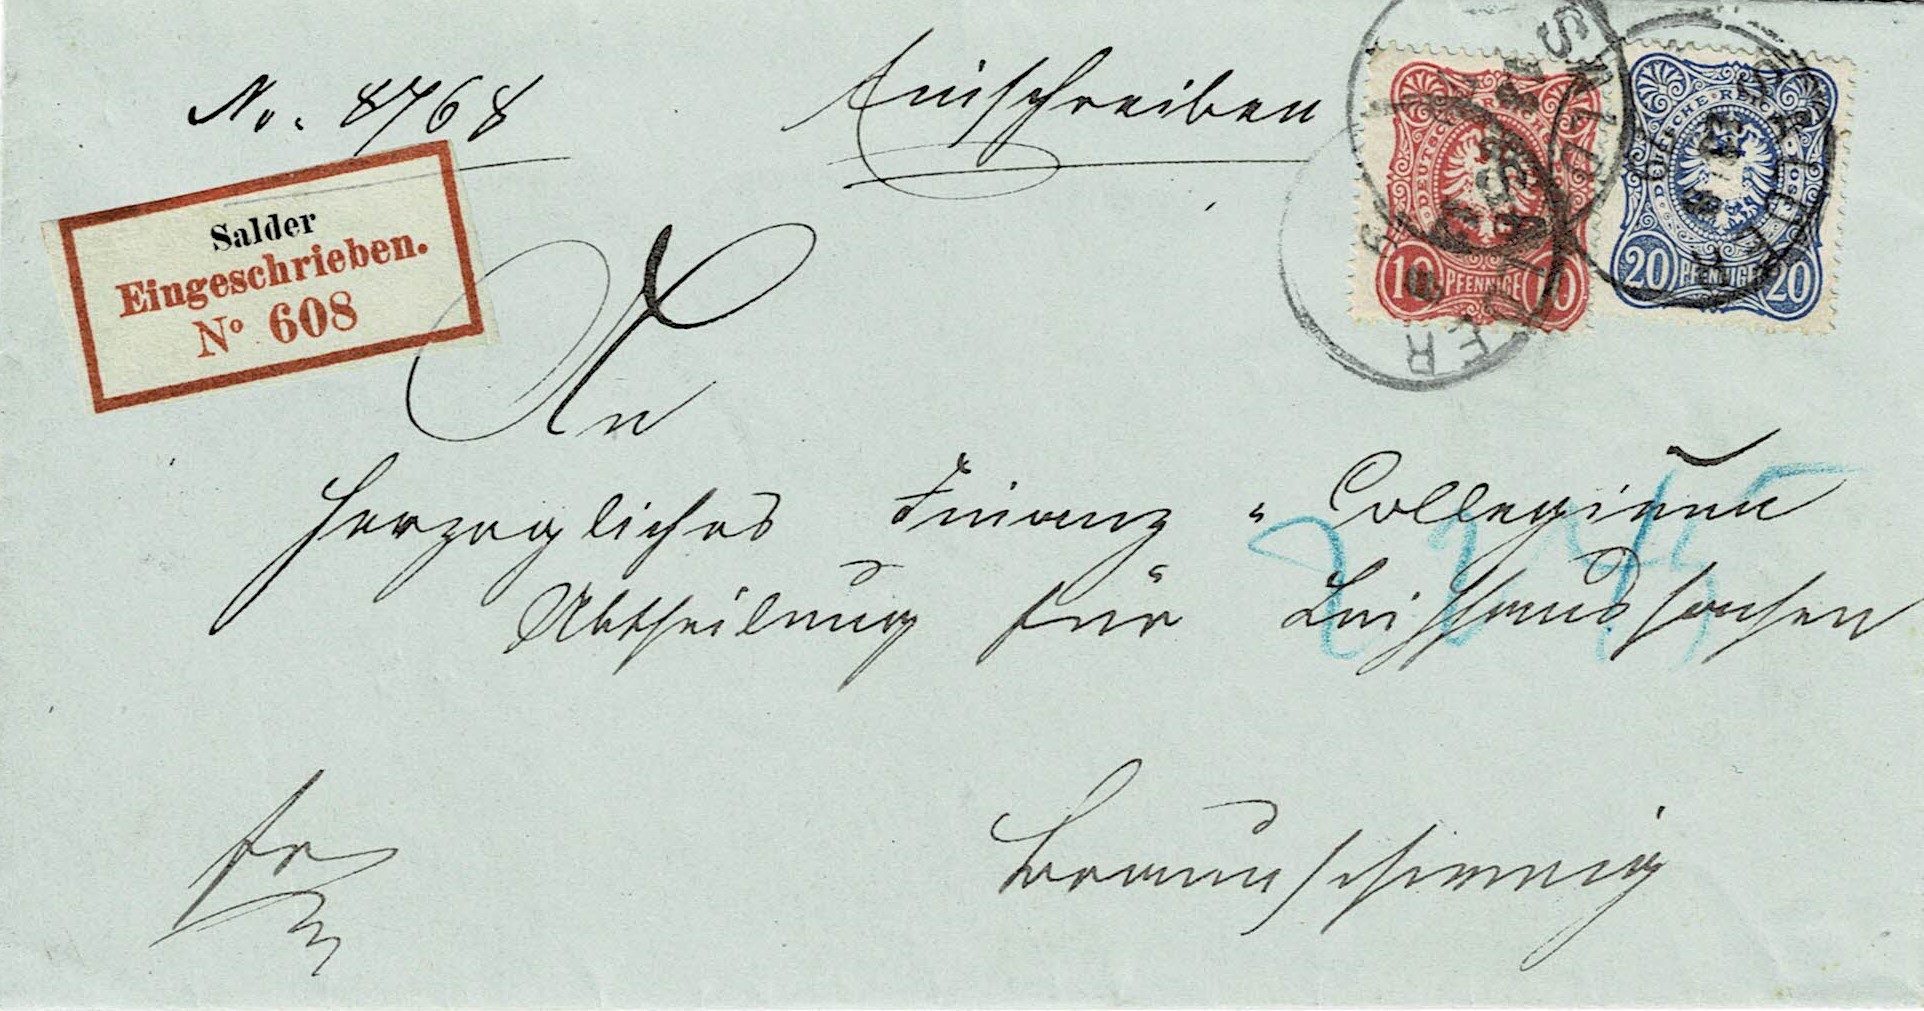 No. 8768 Einschreiben
Salder
Eingeschrieben.
No 608
DEUTSCHE REICHS-POST
10 PFENNIGE 10
DEUTSCHE REICHS-POST
20 PFENNIGE 20
SALDER
An
Herzogliches Finanz-Collegium
Abtheilung für Leihhaussachen
fr
Braunschweig